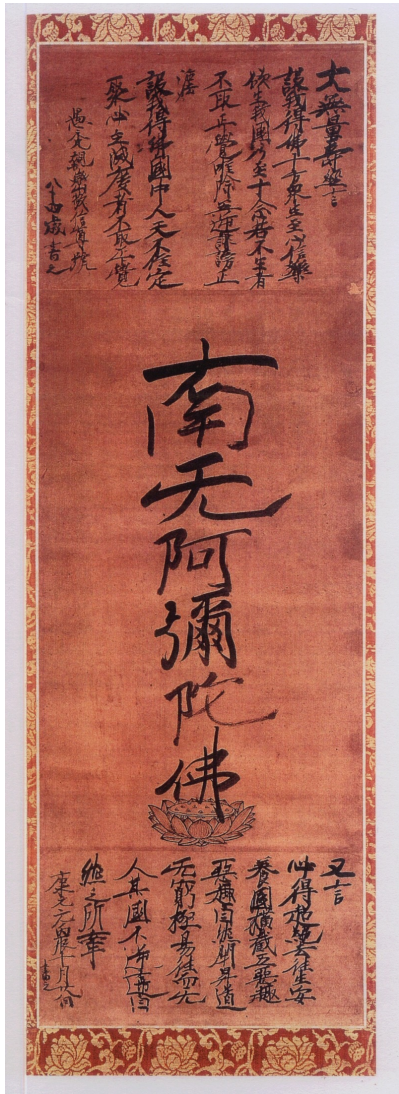 大無量壽經言
設我得佛十方衆生至心信樂
欲生我國乃至十念若不生者
不取正覺唯除五逆誹謗正
灋
設我得佛國中人天不住定
聚必至滅度者不取正覺
愚禿親鸞敬信尊號
八十四歳書之
南无阿彌陀佛
又言
必得超絶去往生安
養國横截五惡趣
惡趣自然閉昇道
无窮極易往而无
人其國不逆違自
然之所牽
康元元丙辰十月
書之